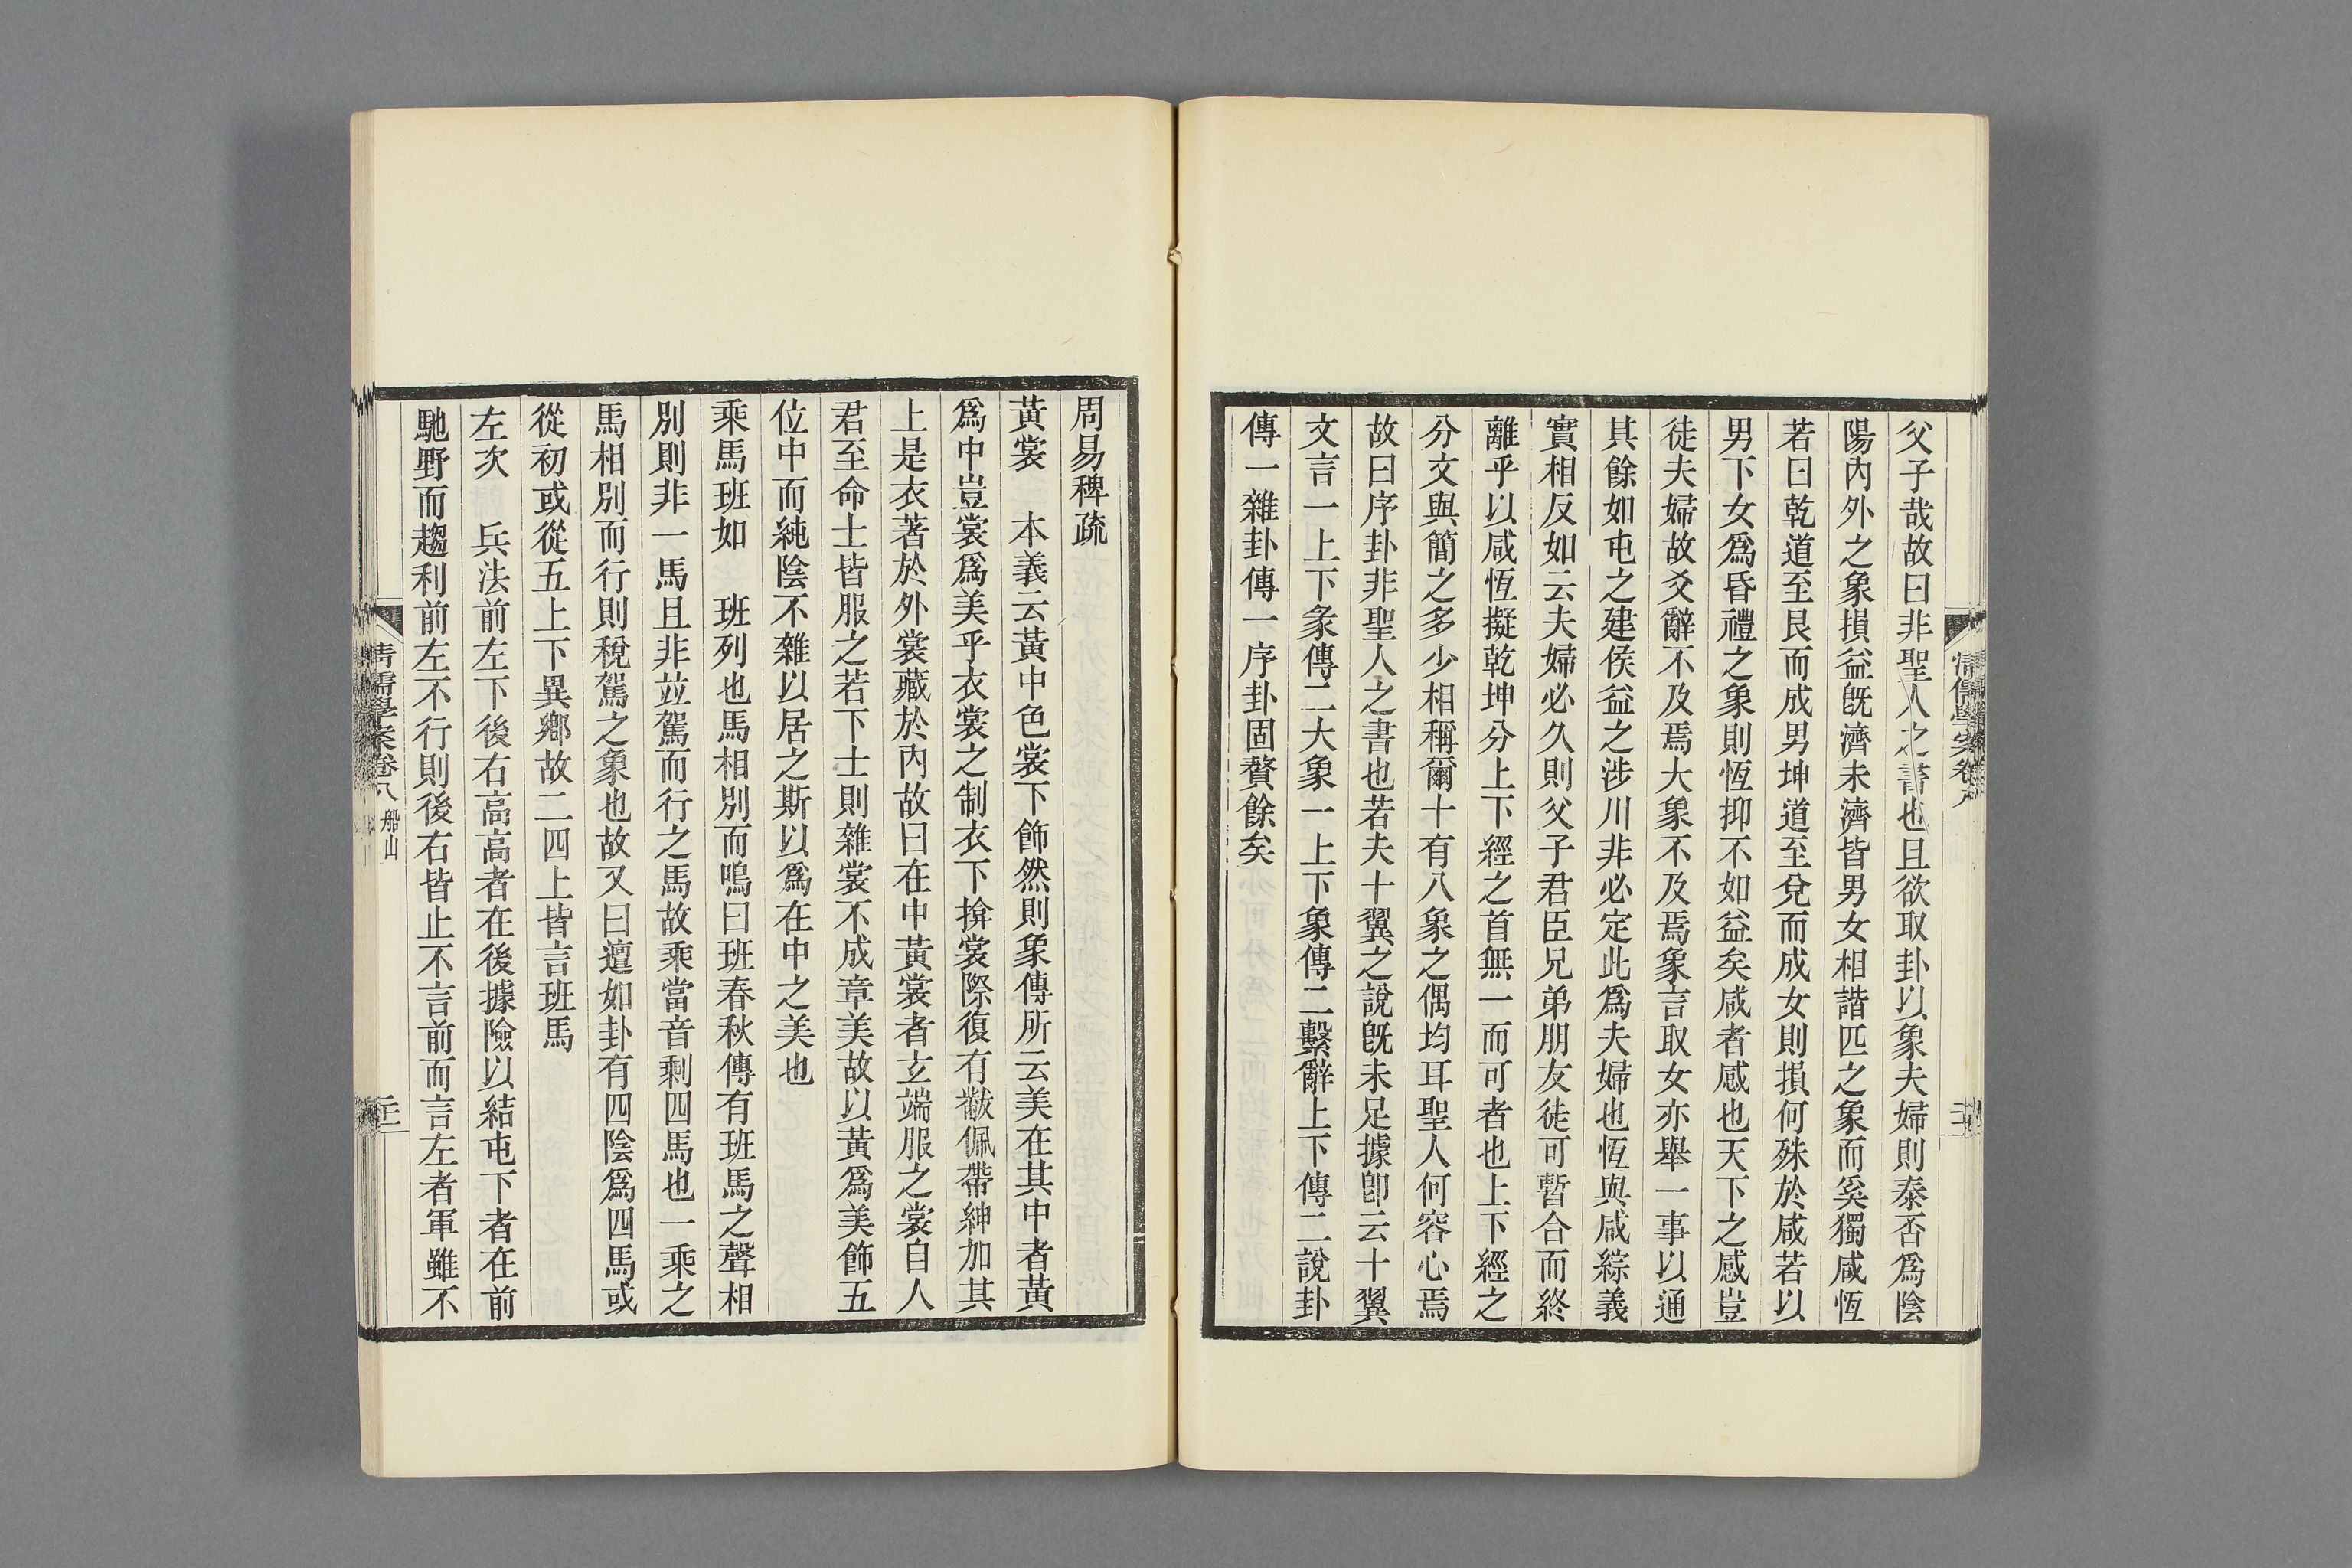 父子哉故曰非聖人之書也且欲取卦以象夫婦則泰否爲陰
陽內外之象損益旣濟未濟皆男女相諧匹之象而奚獨咸恆
若曰乾道至艮而成男坤道至兌而成女則損何殊於咸若以
男下女爲昏禮之象則恆抑不如益矣咸者感也天下之感豈
徒夫婦故爻辭不及焉大象不及焉象言取女亦舉一事以通
其餘如屯之建侯益之涉川非必定此爲夫婦也恆與咸綜義
實相反如云夫婦必久則父子君臣兄弟朋友徒可暫合而終
離乎以咸恆擬乾坤分上下經之首無一而可者也上下經之
分文與簡之多少相稱爾十有八象之偶均耳聖人何容心焉
故曰序卦非聖人之書也若夫十翼之說旣未足據卽云十翼
文言一上下彖傳二大象一上下象傳二繫辭上下傳二說卦
傳一雜卦傳一序卦固贅餘矣
周易稗疏
黃裳　本義云黃中色裳下飾然則象傳所云美在其中者黃
爲中豈裳爲美乎衣裳之制衣下揜裳際復有黻佩帶紳加其
上是衣著於外裳藏於內故曰在中黃裳者玄端服之裳自人
君至命士皆服之若下士則雜裳不成章美故以黃爲美飾五
位中而純陰不雜以居之斯以爲在中之美也
乘馬班如　班列也馬相別而鳴曰班春秋傳有班馬之聲相
別則非一馬且非並駕而行之馬故乘當音剩四馬也一乘之
馬相別而行則稅駕之象也故又曰邅如卦有四陰爲四馬或
從初或從五上下異鄉故二四上皆言班馬
左次　兵法前左下後右高高者在後據險以結屯下者在前
馳野而趨利前左不行則後右皆止不言前而言左者軍雖不
清儒學案卷八　船山